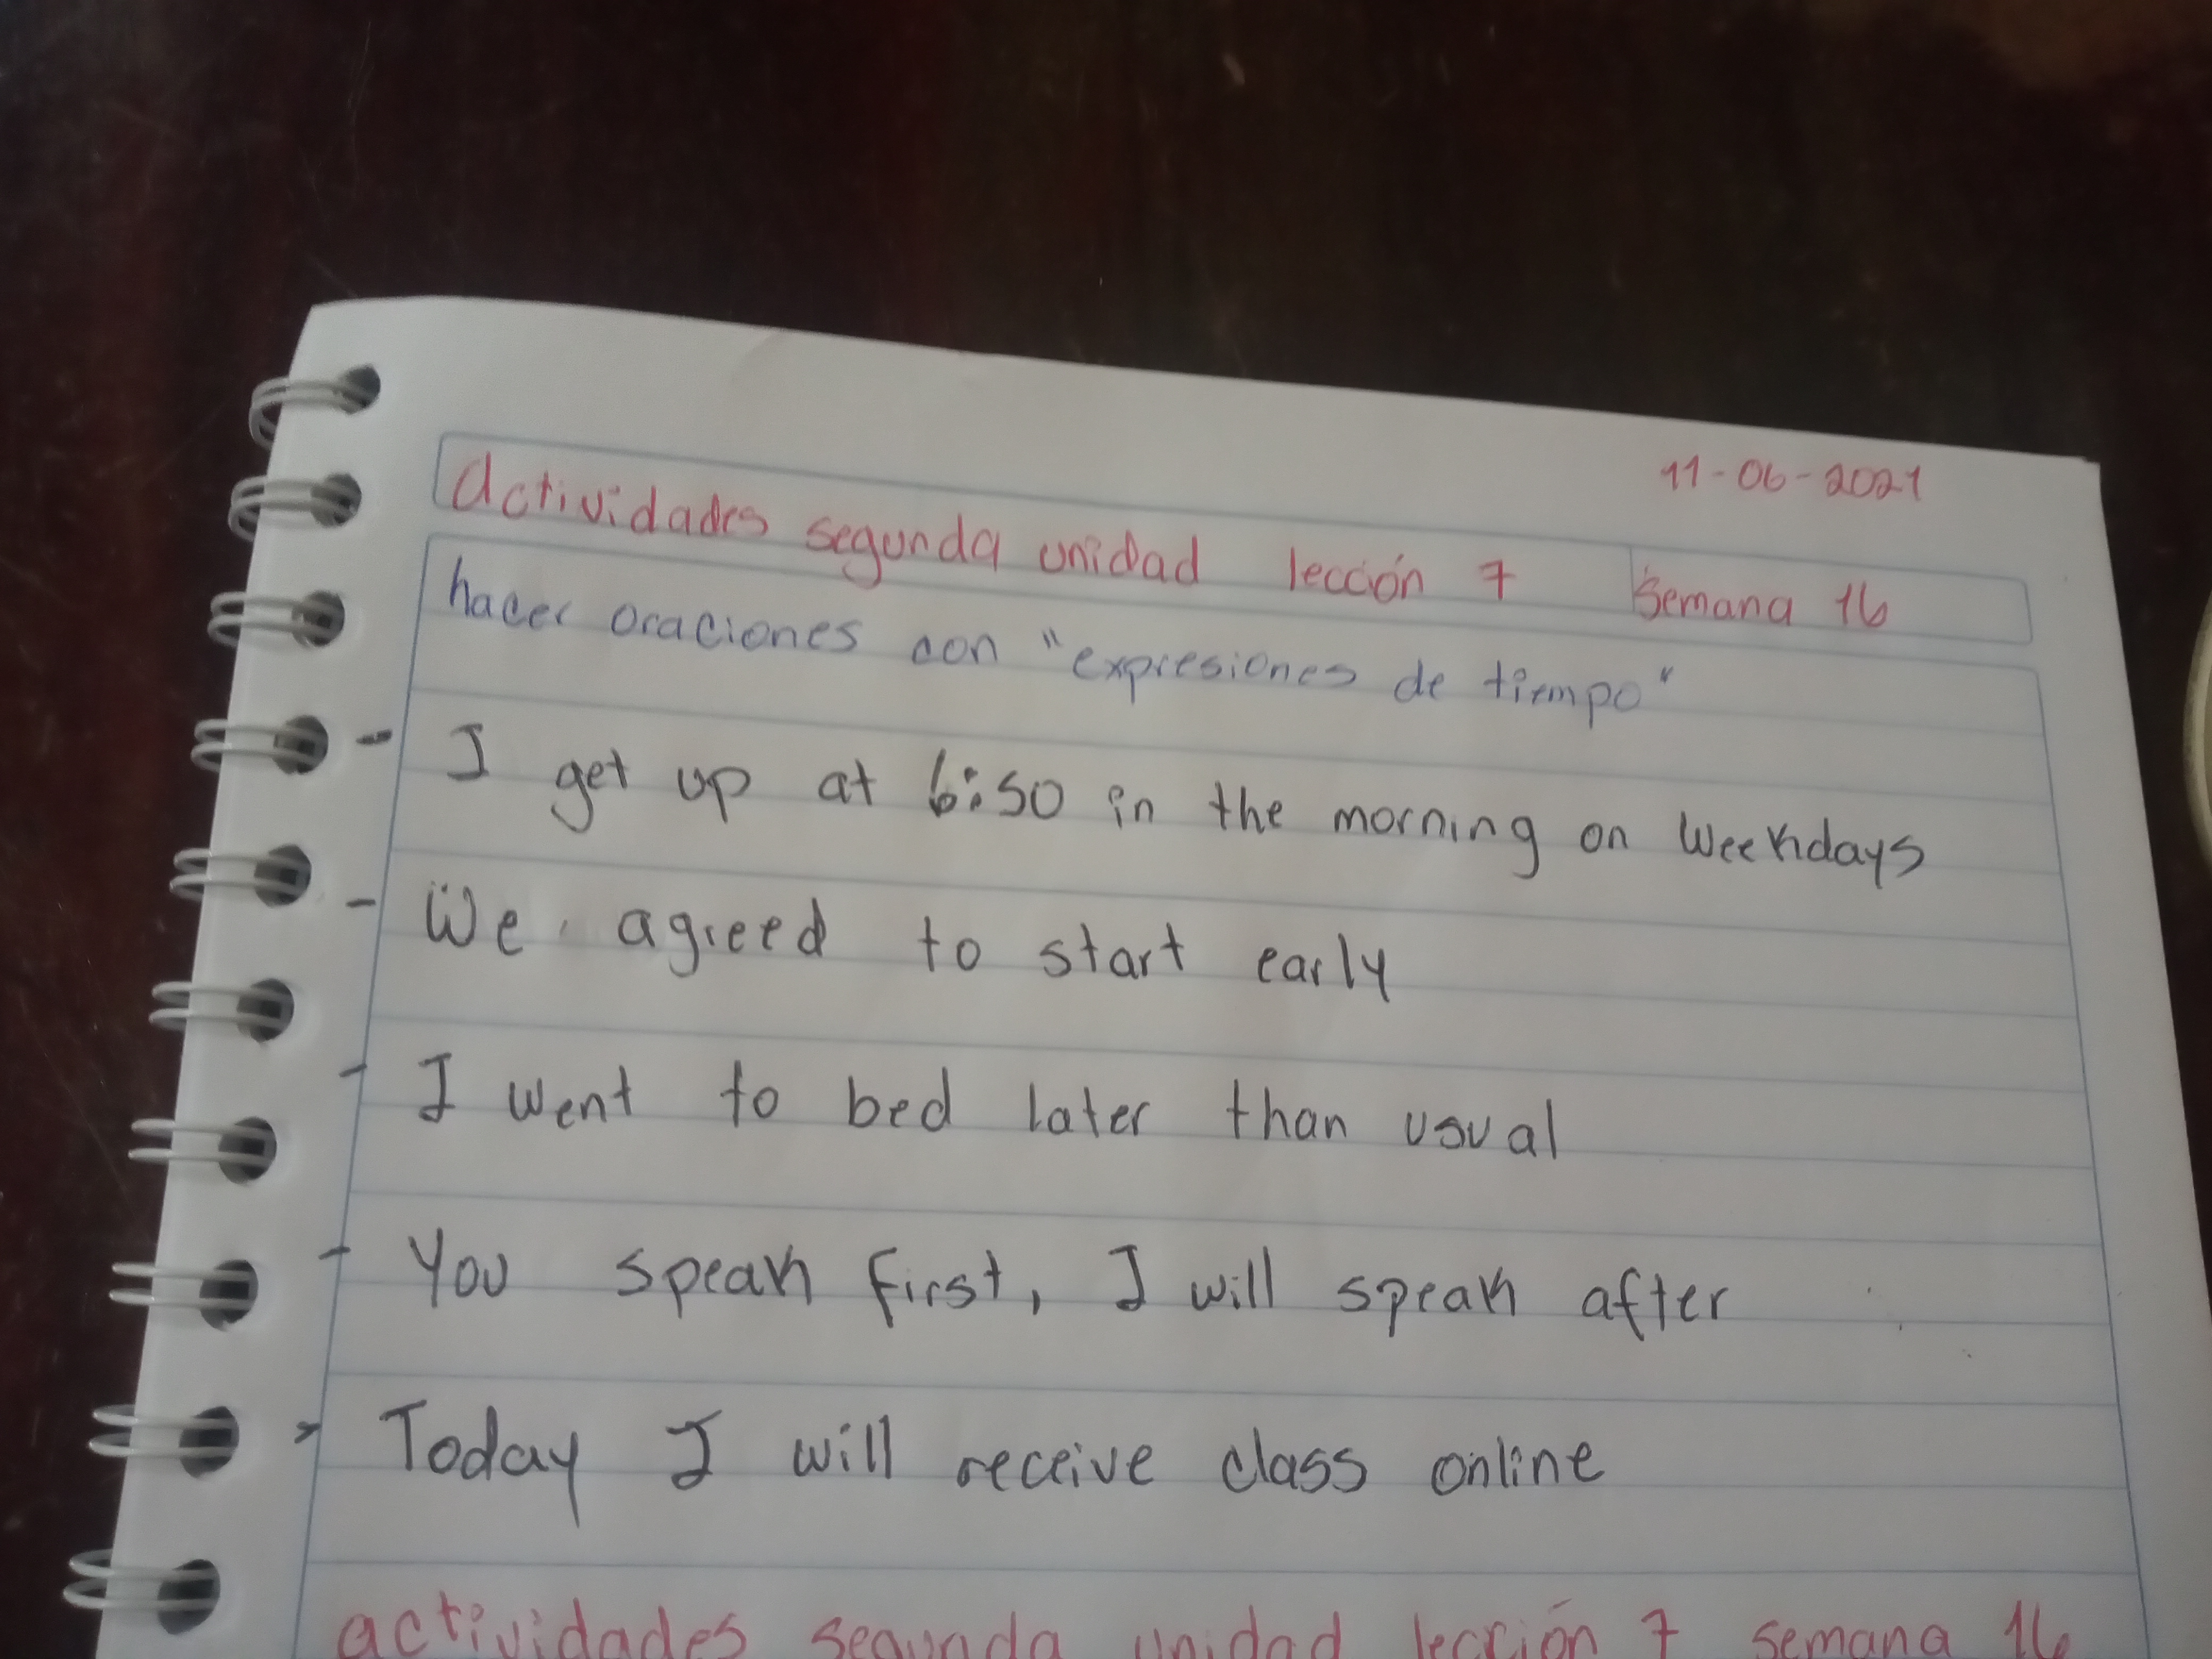 11-06-2021
Actividades segunda unidad lección 7 Semana 16
hacer oraciones con "expresiones de tiempo"
- I get up at 6:50 in the morning on Weekdays
- We agreed to start early
- I went to bed later than usual
- You speak first, I will speak after
- Today I will receive class online
actividades segunda unidad lección 7 semana 16